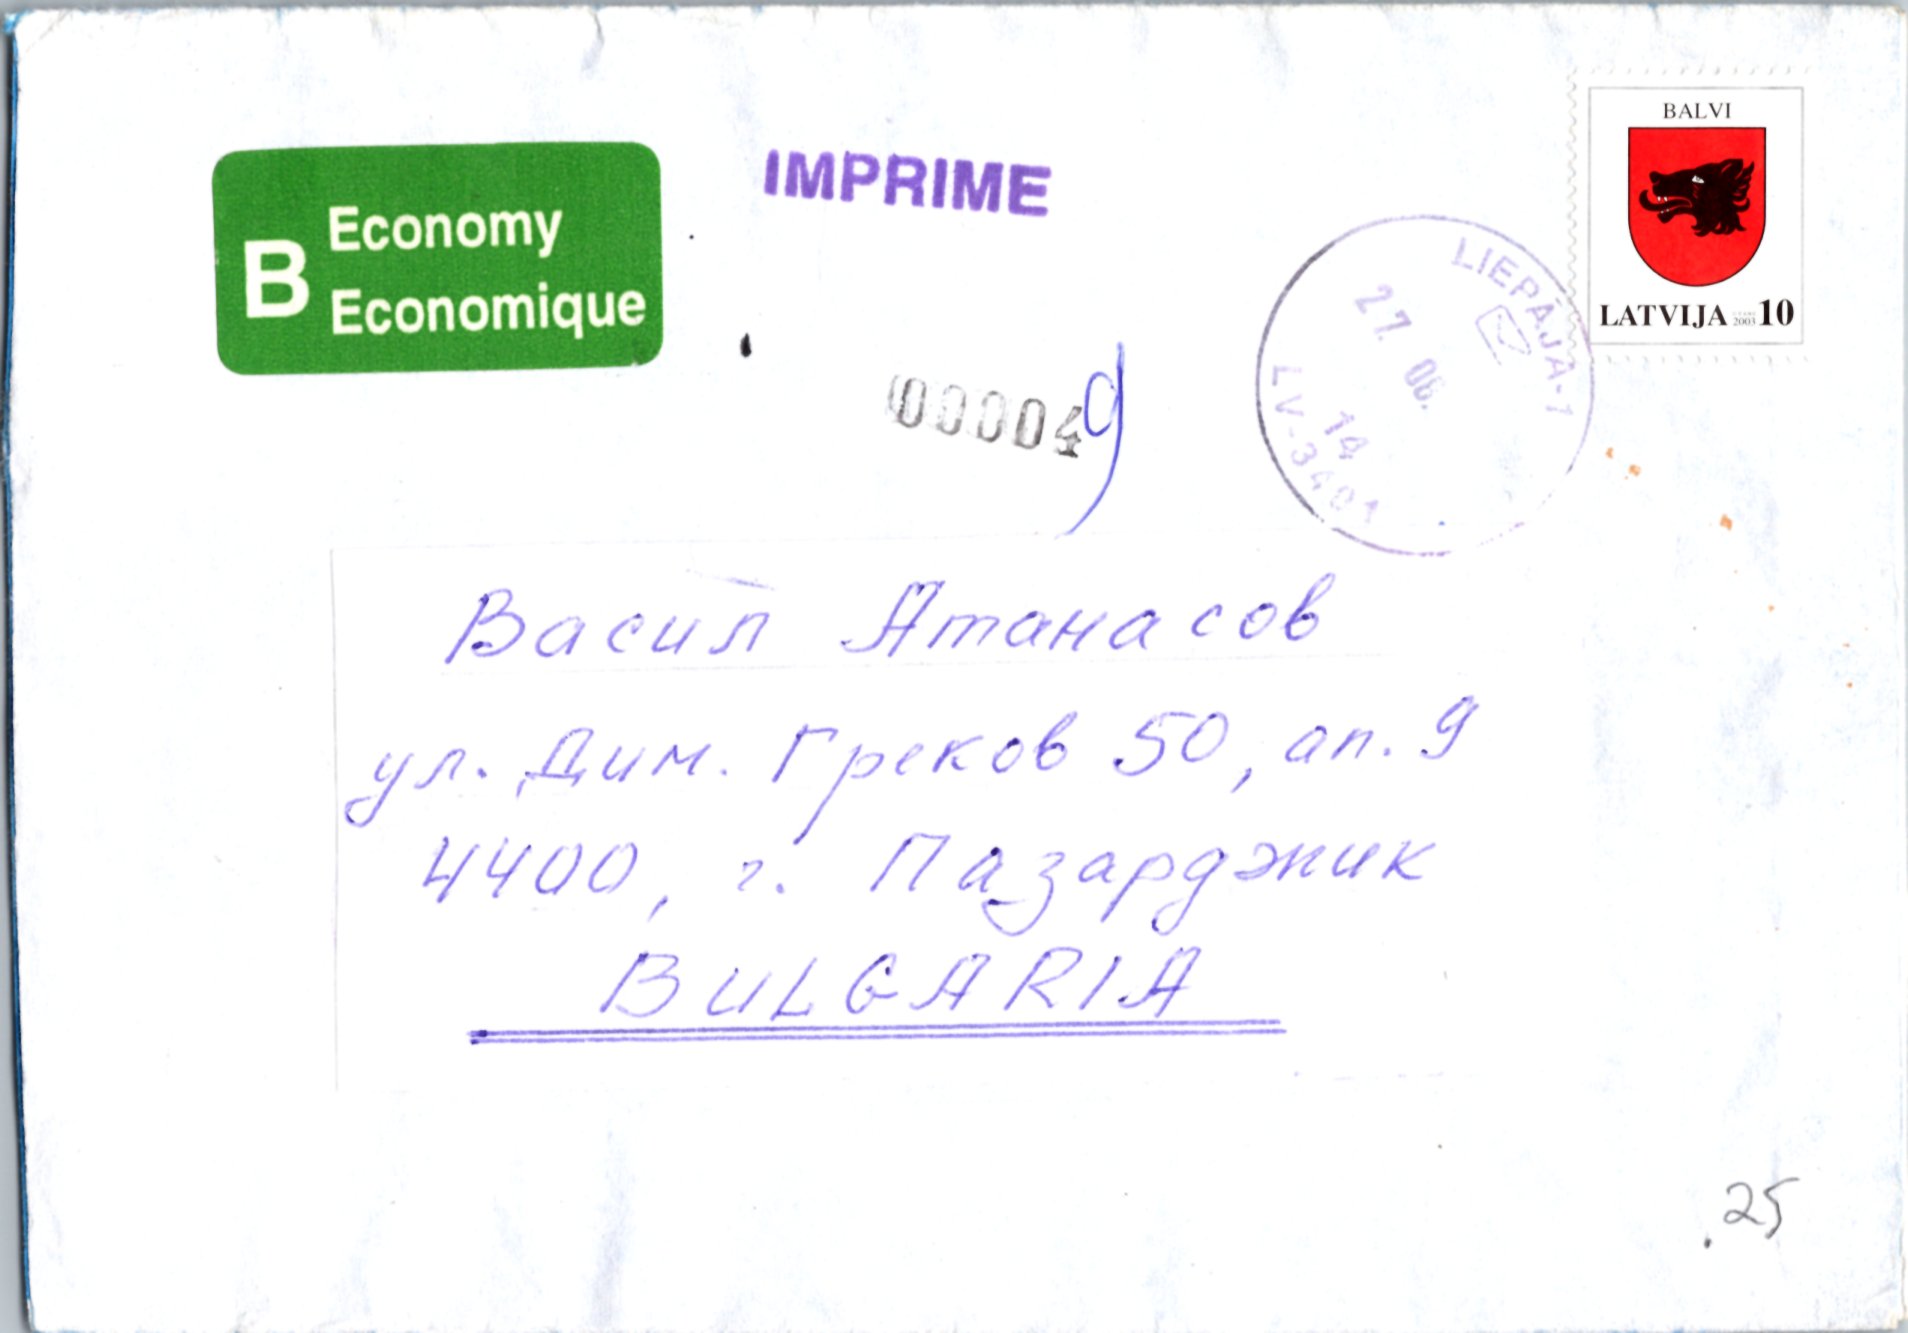 BALVI
LATVIJA 2003 10
B Economy
Economique
IMPRIME
LIEPĀJA-1
27. 06.
14
LV-3401
00004
9
Васил Атанасов
ул. Дим. Греков 50, ап. 9
4400, г. Пазарджик
BULGARIA
25